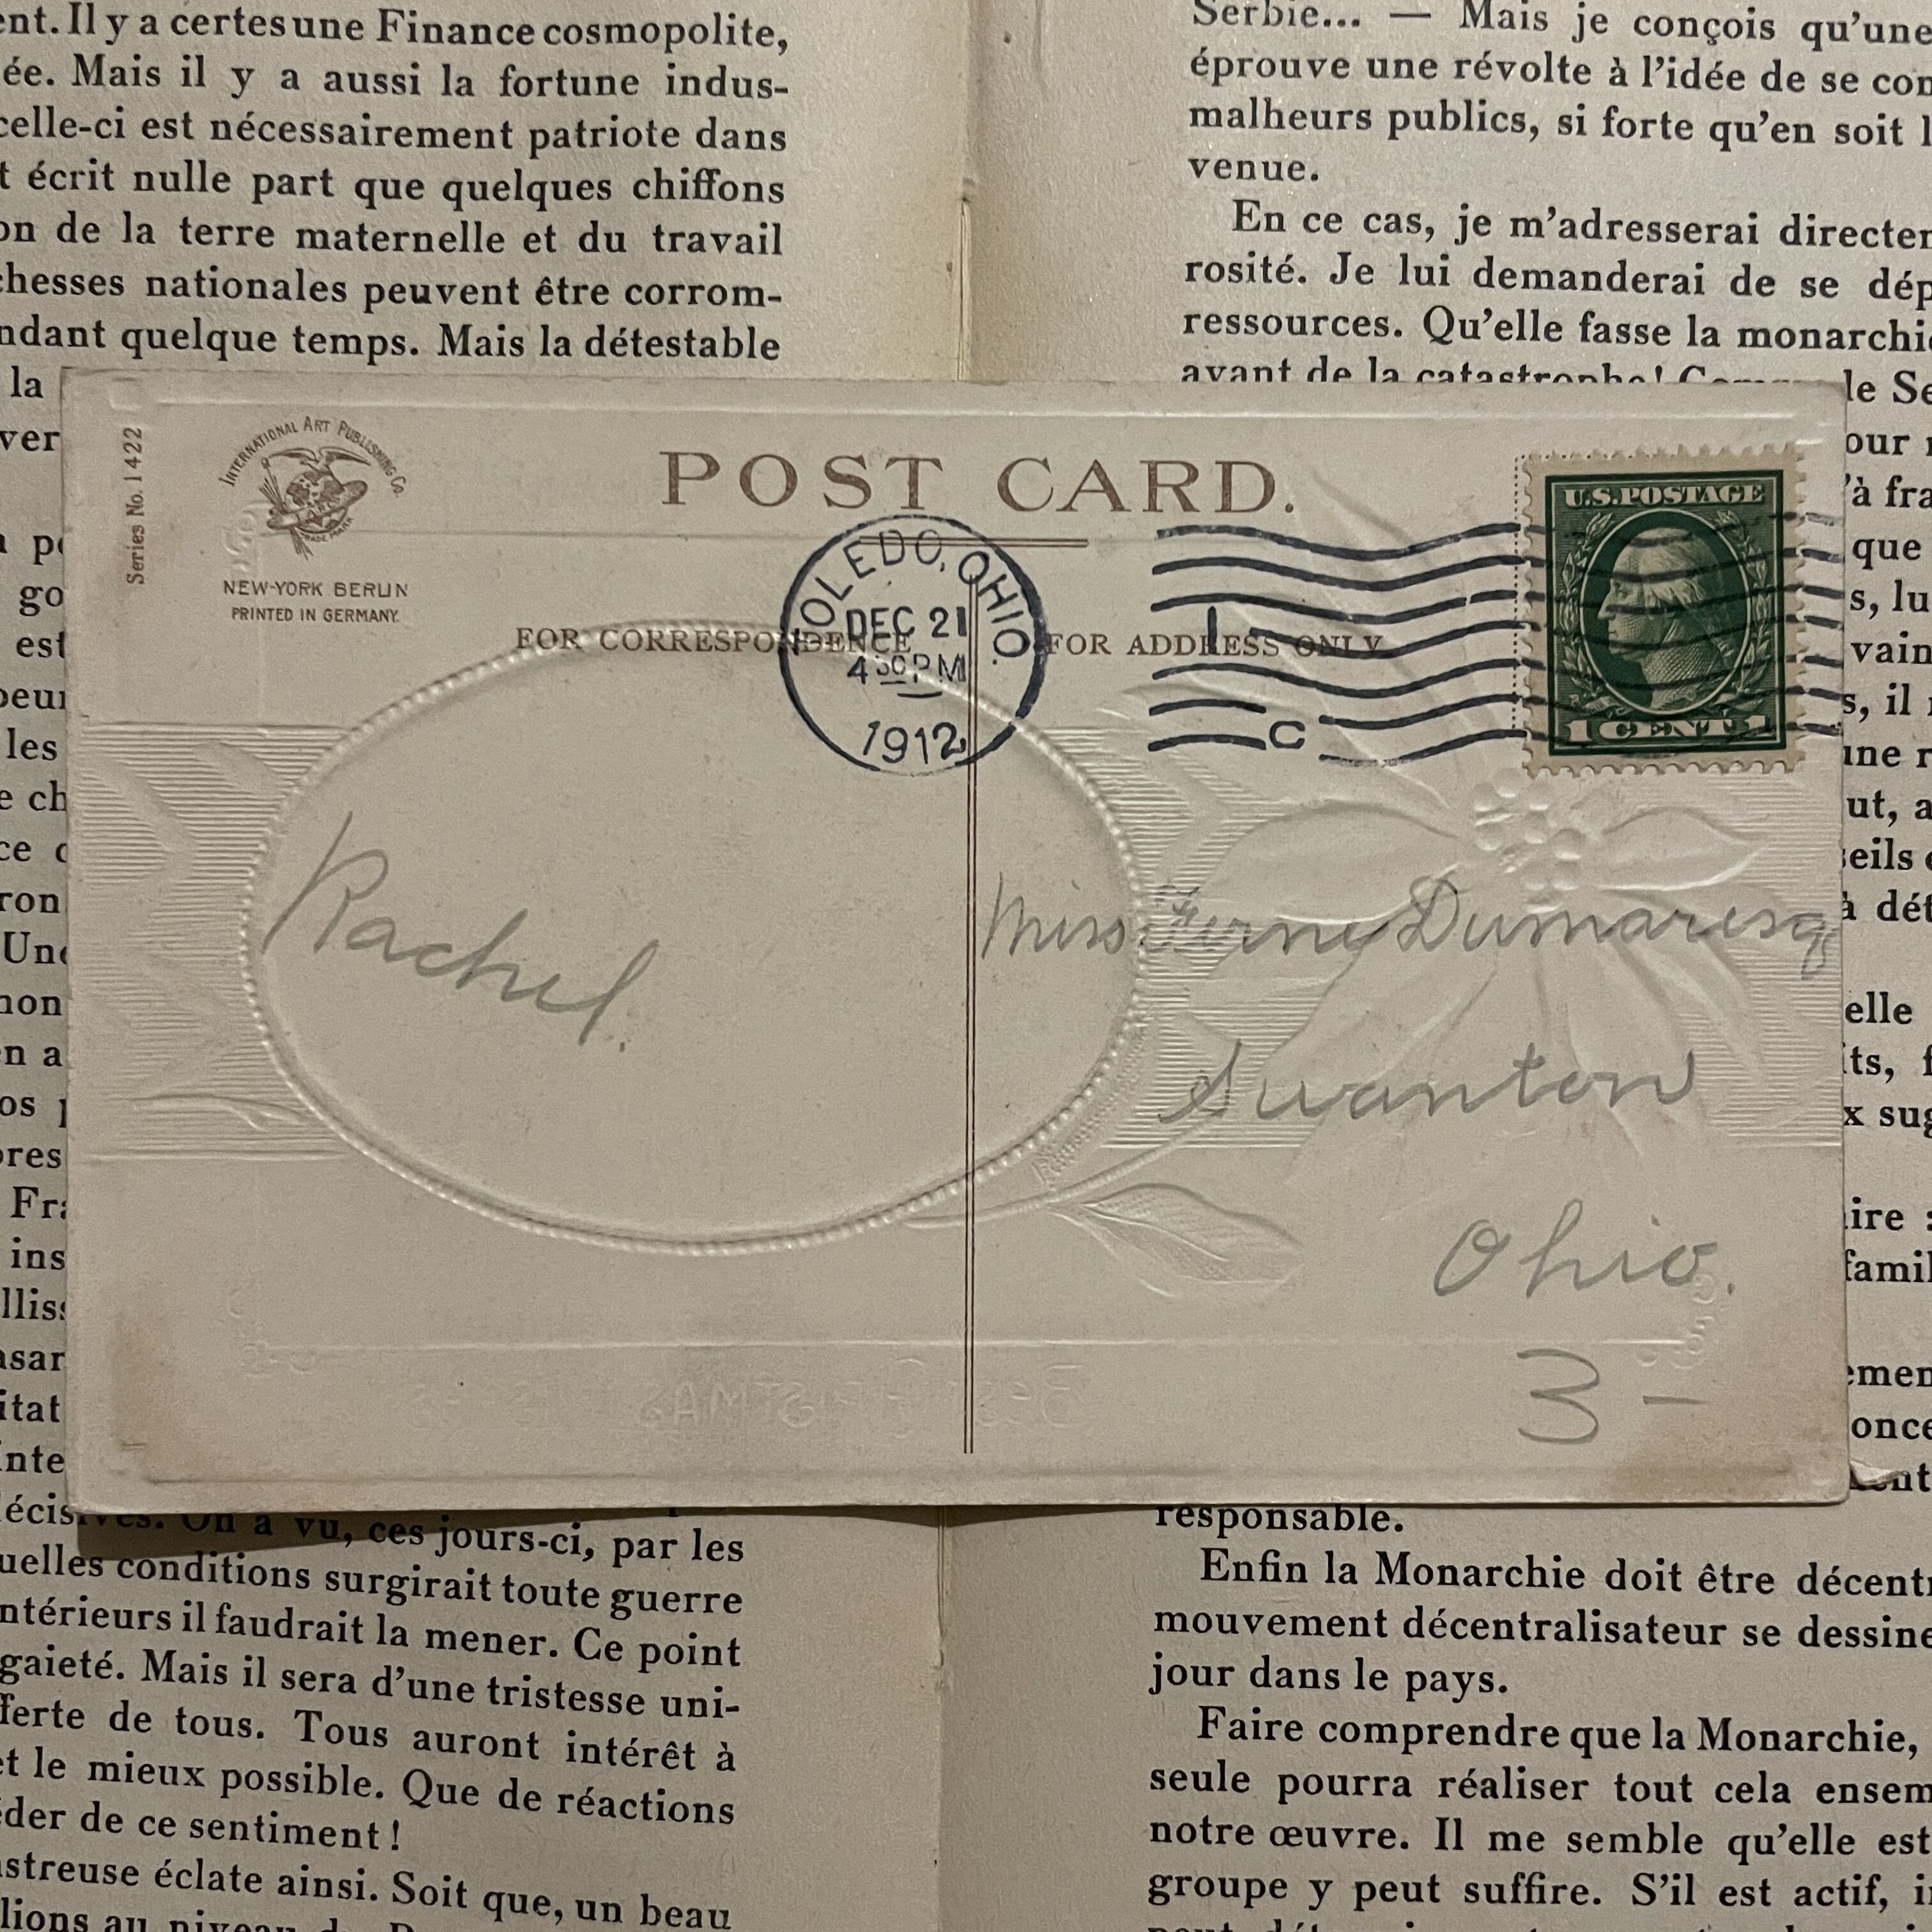 ent. Il y a certes une Finance cosmopolite,
ée. Mais il y a aussi la fortune indus-
celle-ci est nécessairement patriote dans
t écrit nulle part que quelques chiffons
on de la terre maternelle et du travail
chesses nationales peuvent être corrom-
ndant quelque temps. Mais la détestable
la
Serbie... — Mais je conçois qu'une
éprouve une révolte à l'idée de se con
malheurs publics, si forte qu'en soit l
venue.
En ce cas, je m'adresserai directem
rosité. Je lui demanderai de se dép
ressources. Qu'elle fasse la monarchie
avant de la catastrophe! le Se
Series No. 1422
INTERNATIONAL ART PUBLISHING Co.
TRADE MARK
NEW-YORK BERLIN
PRINTED IN GERMANY.
POST CARD.
FOR CORRESPONDENCE
FOR ADDRESS ONLY
TOLEDO, OHIO.
DEC 21
4 30 PM
1912
C
U.S. POSTAGE
1 CENT 1
Rachel.
Miss Ferne Dumaresq
Swanton
Ohio.
3 -
ver
go
est
peur
les
e ch
ce
ron
Une
non
n a
os
res
Fra
ins
lliss
asar
itat
inte
our
'à fra
que
s, lu
vain
s, il
une r
ut, a
seils
à dét
elle
its, f
x sug
ire :
famil
emen
once
ent
décisives. On a vu, ces jours-ci, par les
uelles conditions surgirait toute guerre
ntérieurs il faudrait la mener. Ce point
gaieté. Mais il sera d'une tristesse uni-
fferte de tous. Tous auront intérêt à
et le mieux possible. Que de réactions
éder de ce sentiment !
astreuse éclate ainsi. Soit que, un beau
lions au niveau
responsable.
Enfin la Monarchie doit être décentr
mouvement décentralisateur se dessine
jour dans le pays.
Faire comprendre que la Monarchie,
seule pourra réaliser tout cela ensem
notre œuvre. Il me semble qu'elle est
groupe y peut suffire. S'il est actif, i